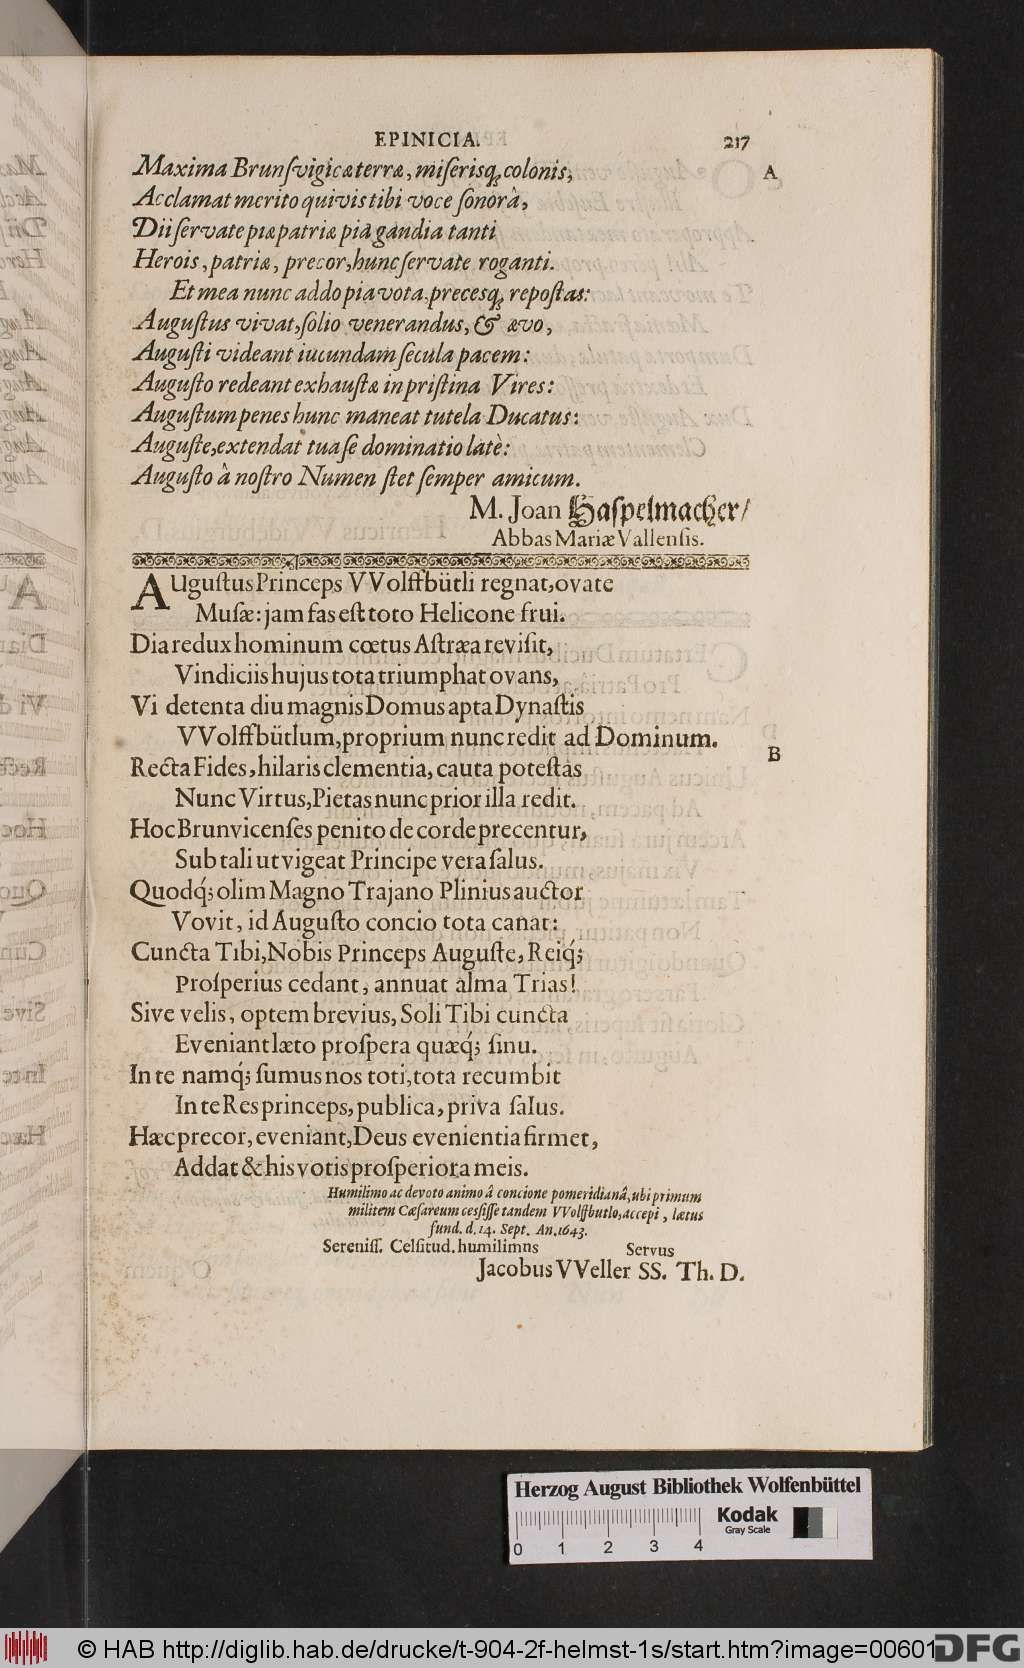 EPINICIA. 217
Maxima Brunſvigicæ terræ, miſerisq́; colonis, A
Acclamat merito quivis tibi voce ſonorâ,
Dii ſervate piæ patriæ pia gaudia tanti
Herois, patriæ, precor, hunc ſervate roganti.
Et mea nunc addo pia vota, precesq́; repoſtas:
Auguſtus vivat, ſolio venerandus, & ævo,
Auguſti videant iucundam ſecula pacem:
Auguſto redeant exhauſtæ in priſtina Vires:
Auguſtum penes hunc maneat tutela Ducatus:
Auguſte, extendat tua ſe dominatio latè:
Auguſto à noſtro Numen ſtet ſemper amicum.
M. Joan Haſpelmacher/
Abbas Mariæ Vallenſis.
AUguſtus Princeps VVolffbütli regnat, ovate
Muſæ: jam fas eſt toto Helicone frui.
Dia redux hominum cœtus Aſtræa reviſit,
Vindiciis hujus tota triumphat ovans,
Vi detenta diu magnis Domus apta Dynaſtis
VVolffbütlum, proprium nunc redit ad Dominum.
Recta Fides, hilaris clementia, cauta poteſtas B
Nunc Virtus, Pietas nunc prior illa redit.
Hoc Brunvicenſes penito de corde precentur,
Sub tali ut vigeat Principe vera ſalus.
Quodq́; olim Magno Trajano Plinius auctor
Vovit, id Auguſto concio tota canat:
Cuncta Tibi, Nobis Princeps Auguſte, Reiq́;
Proſperius cedant, annuat alma Trias!
Sive velis, optem brevius, Soli Tibi cuncta
Eveniant læto proſpera quæq́; ſinu.
In te namq́; ſumus nos toti, tota recumbit
In te Res princeps, publica, priva ſalus.
Hæc precor, eveniant, Deus evenientia firmet,
Addat & his votis proſperiora meis.
Humilimo ac devoto animo â concione pomeridianâ, ubi primum
militem Cæſareum cesſiſſe tandem VVolffbutlo, accepi, lætus
fund. d. 14. Sept. An. 1643.
Sereniſſ. Celſitud. humilimns Servus
Jacobus VVeller SS. Th. D.
Herzog August Bibliothek Wolfenbüttel
Kodak
Gray Scale
0 1 2 3 4
© HAB http://diglib.hab.de/drucke/t-904-2f-helmst-1s/start.htm?image=00601
DFG